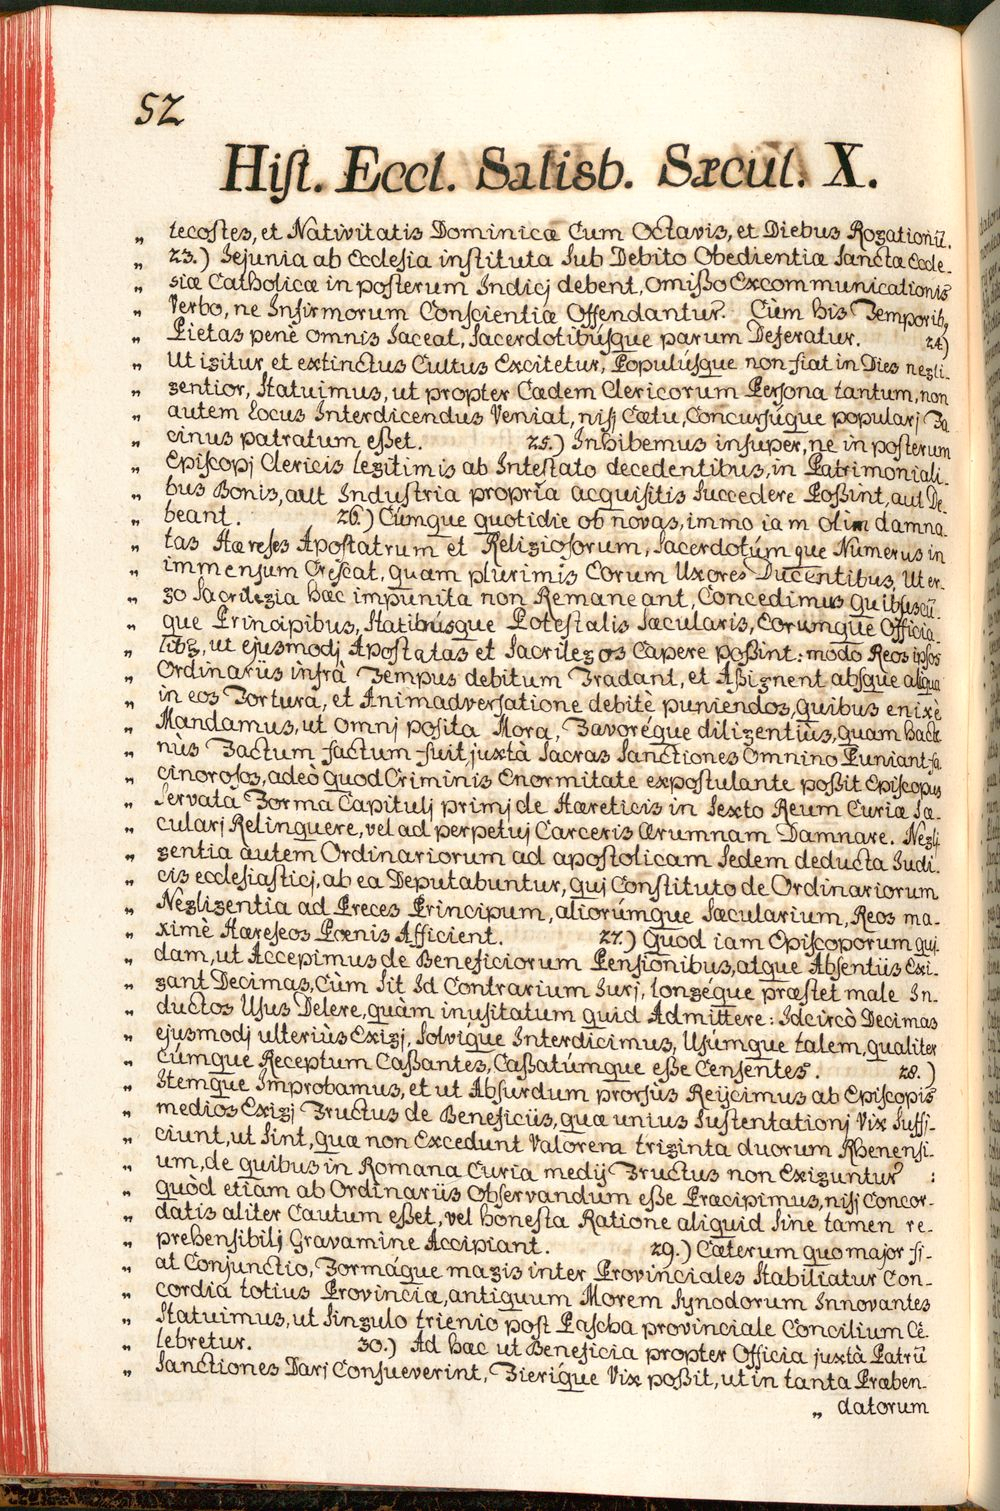 52
Hist. Eccl. Salisb. Sæcul. X.
„ tecostes, et Nativitatis Dominicæ Cum Octavis, et Diebus Rogationū.
„ 23.) Jejunia ab Ecclesia instituta Sub Debito Obedientiæ Sancta Eccle-
„ siæ Catholicæ in posterum Indicj debent, omißo Excommunicationis
„ Verbo, ne Infirmorum Conscientiæ Offendantur. Cùm his Temporib9
„ Pietas penè omnis Jaceat, Sacerdotibúsque parum Deferatur. 24.)
„ Ut igitur et extinctus Cultus Excitetur, Populúsque non fiat in Dies negli-
„ gentior, Statuimus, ut propter Cædem Clericorum Persona tantum, non
„ autem Locus Interdicendus Veniat, nisj Cœtu, Concursúque popularj Fa-
„ cinus patratum eßet. 25.) Inhibemus insuper, ne in posterum
„ Episcopj Clericis legitimis ab Intestato decedentibus, in Patrimoniali-
„ bus Bonis, aut Industria propria acquisitis Succedere Poßint, aut De-
„ beant. 26.) Cúmque quotidie ob novas, immo iam olim damna-
„ tas Hæreses Apostatrum et Religiosorum, Sacerdotúmque Numerus in
„ immensum Crescat, quam plurimis Eorum Uxores Ducentibus, Ut er-
„ go Sacrilegia hæc impunita non Remaneant, Concedimus quibuscū-
„ que Principibus, Statibúsque Potestatis Sæcularis, Eorumque Officia-
„ libg, ut ejusmodj Apostatas et Sacrilegos Capere poßint: modò Reos ipsos
„ Ordinariis infrà Tempus debitum Tradant, et Aßignent absque aliqua
„ in eos Tortura, et Animadversatione debitè puniendos, quibus enixè
„ Mandamus, ut omnj posita Mora, Favoréque diligentiùs, quam hacte-
„ nùs Factum factum fuit, juxtà Sacras Sanctiones Omnino Puniant fa-
„ cinorosos, adeò quod Criminis Enormitate expostulante poßit Episcopus
„ Servatâ Forma Capitulj primj de Hæreticis in Sexto Reum Curiæ Sæ-
„ cularj Relinquere, vel ad perpetuj Carceris Ærumnam Damnare. Negli-
„ gentia autem Ordinariorum ad apostolicam Sedem deducta Judi-
„ cis ecclesiasticj, ab ea Deputabuntur, quj Constituto de Ordinariorum
„ Negligentia ad Preces Principum, aliorúmque Sæcularium, Reos ma-
„ ximè Hæreseos Pœnis Afficient. 27.) Quod iam Episcoporum qui-
„ dam, ut Accepimus de Beneficiorum Pensionibus, atque Absentiis Exi-
„ gant Decimas, Cùm Sit Id Contrarium Jurj, longéque præstet male In-
„ ductos Usus Delere, quàm inusitatum quid Admittere: Idcircò Decimas
„ ejusmodj ulteriùs Exigj, Solvique Interdicimus, Usúmque talem, qualiter
„ cúmque Receptum Caßantes, Caßatúmque eße Censentes. 28.)
„ Itemque Improbamus, et ut Absurdum prorsùs Reijcimus ab Episcopis
„ medios Exigj Fructus de Beneficiis, quæ unius Sustentationj Vix Suffi-
„ ciunt, ut Sint, quæ non Excedunt Valorem triginta duorum Rhenensi-
„ um, de quibus in Romana Curia medij Fructus non Exiguntur :
„ quòd etiam ab Ordinariis Observandum eße Præcipimus, nisj Concor-
„ datis aliter Cautum eßet, vel honesta Ratione aliquid Sine tamen re-
„ prehensibilj Gravamine Accipiant. 29.) Cæterum quo major fi-
„ at Conjunctio, Formáque magis inter Provinciales Stabiliatur Con-
„ cordia totius Provinciæ, antiquum Morem Synodorum Innovantes
„ Statuimus, ut Singulo trienio post Pascha provinciale Concilium Ce-
„ lebretur. 30.) Ad hæc ut Beneficia propter Officia juxtà Patrū
„ Sanctiones Darj Consueverint, Fierique Vix poßit, ut in tanta Præben-
„ datorum